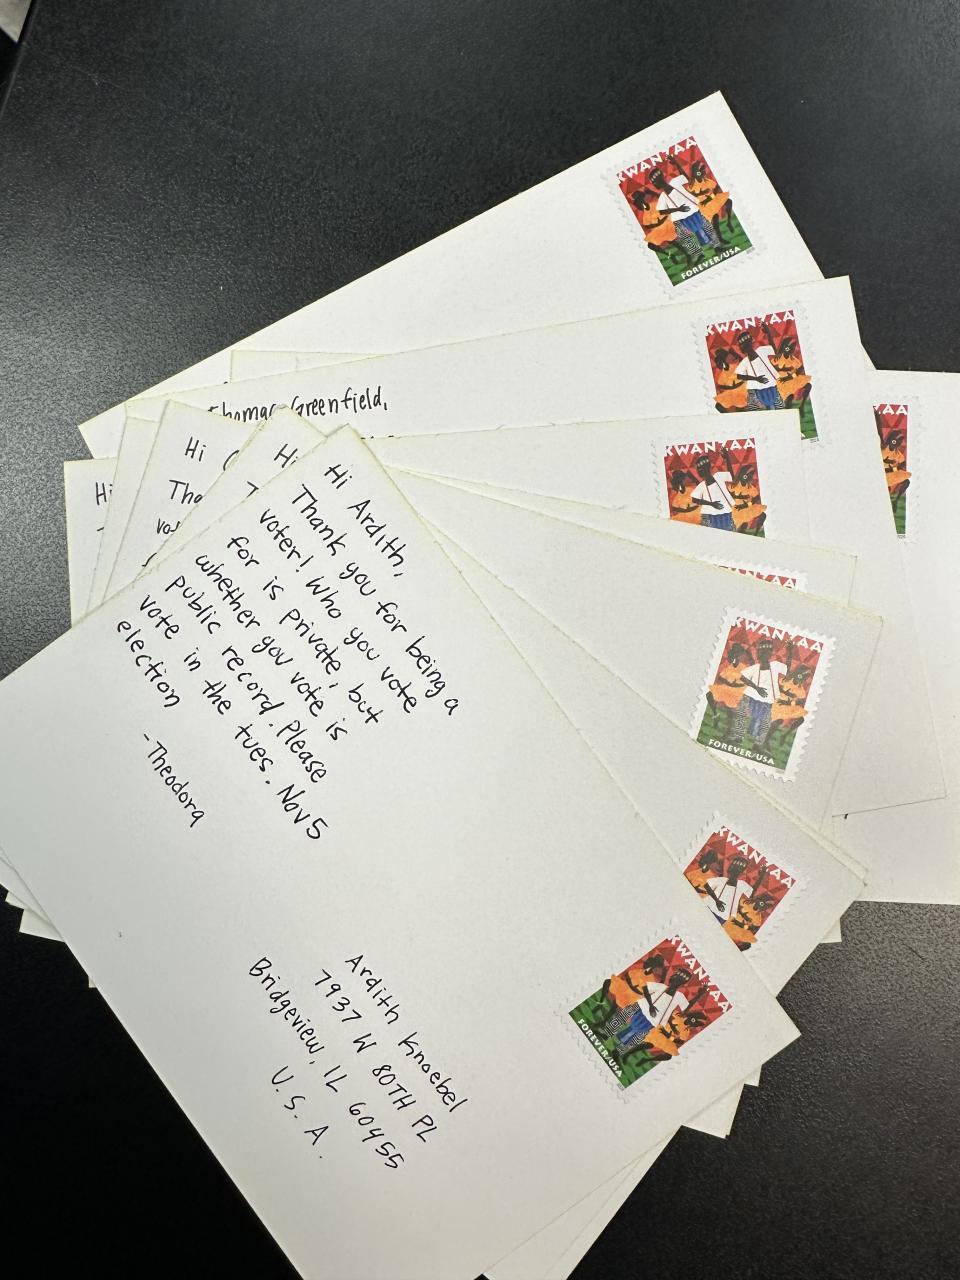 KWANZAA
FOREVER/USA
KWANZAA
Thomas Greenfield,
KWANZAA
KWANZAA
FOREVER/USA
Hi
Hi
Hi
KWANZAA
Hi Ardith,
Thank you for being a
voter! Who you vote
for is private, but
whether you vote is
public record. Please
vote in the tues. Nov 5
election
-Theodora
KWANZAA
FOREVER/USA
Ardith Knoebel
7937 W 80TH PL
Bridgeview, IL 60455
U.S.A.